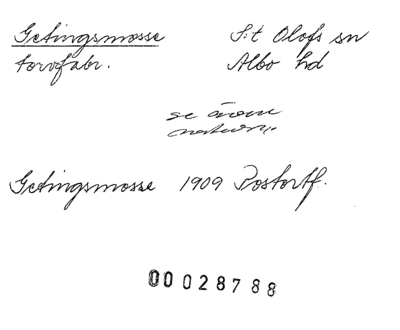 Getingsmosse S:t Olofs sn
torvfabr. Albo hd
se även
naturn.
Getingsmosse 1909 Postortf.
00028788